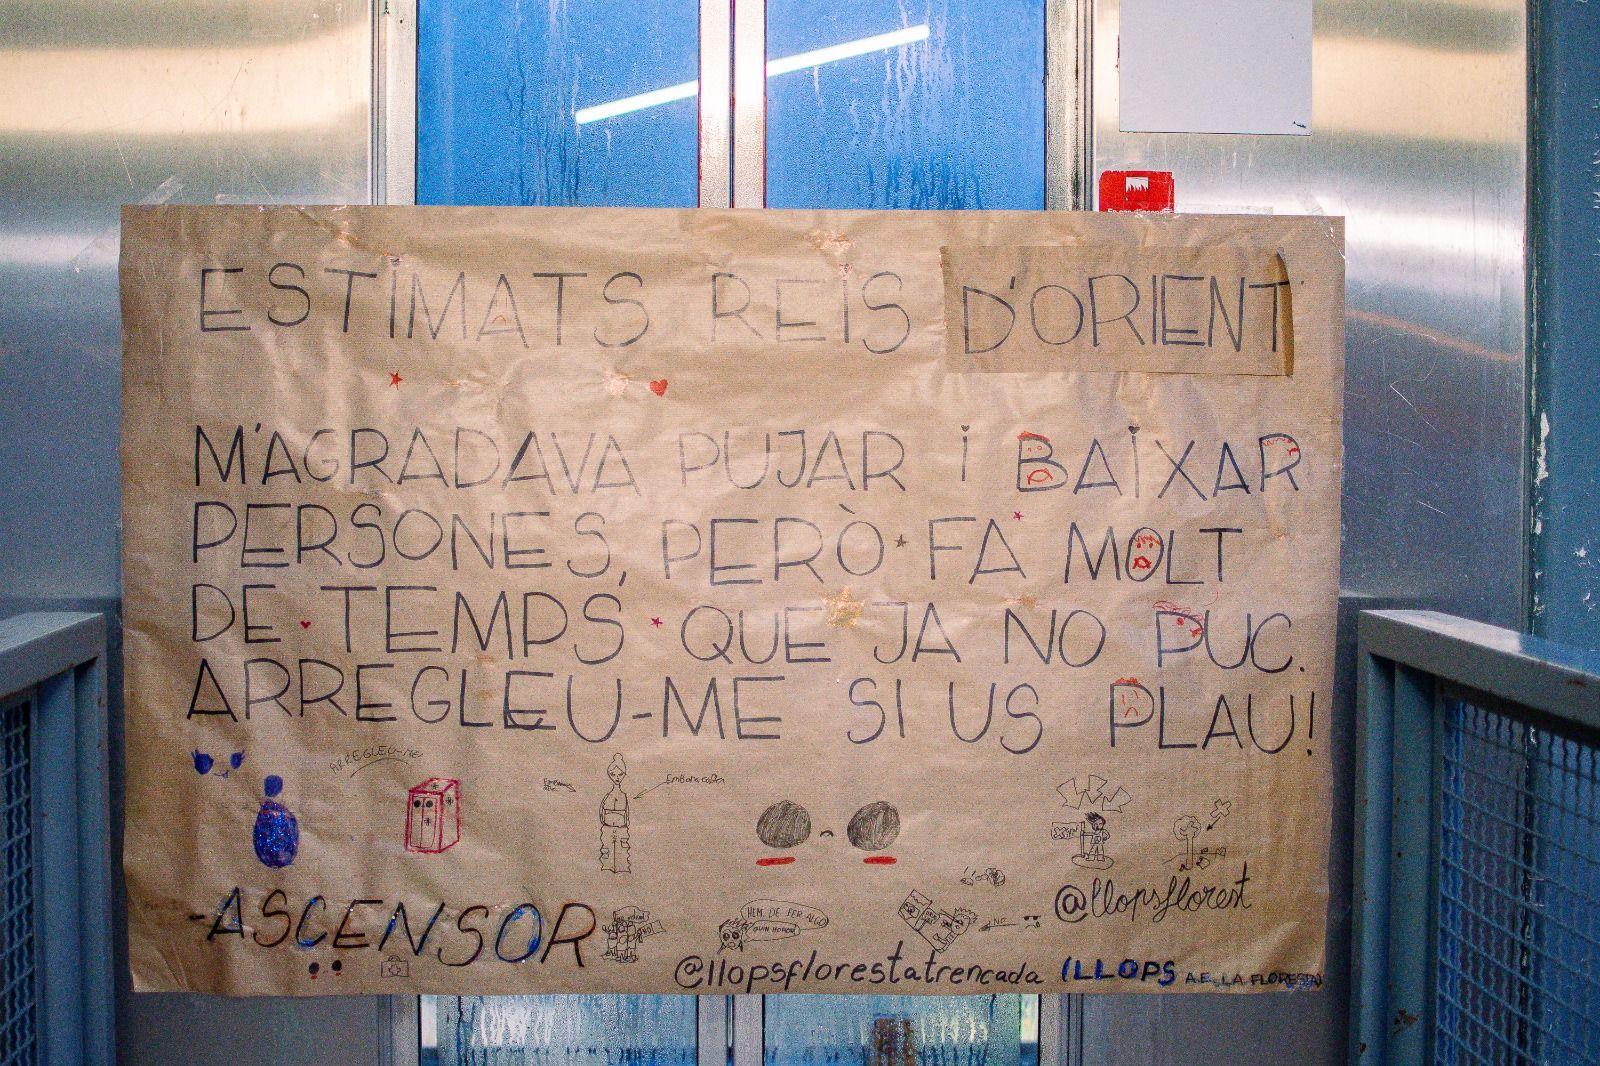 ESTIMATS REIS D'ORIENT
M'AGRADAVA PUJAR i BAIXAR
PERSONES, PERÒ FA MOLT
DE TEMPS, QUE JA NO PUC.
ARREGLEU-ME SI US PLAU!
ARREGLEU-ME
-ASCENSOR
HEM DE FER ALGO
QUIN HORROR
NO
@llopsflorest
@llopsflorestatrencada (LLOPS A.E. LA FLORESTA)